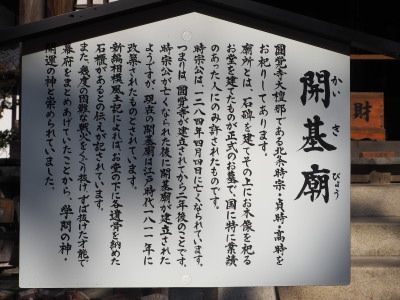 開基廟
かいきびょう
圓覚寺大檀那である北条時宗・貞時・高時を
お祀りしてあります。
廟所とは、石碑を建てその上にお木像を祀る
お堂を建てたものが正式のお墓で、国に特に業績
のあった人にのみ許されたものです。
時宗公は一二八四年四月四日に亡くなられています。
つまりは、圓覚寺が建立されてから二年後のことです。
時宗公が亡くなられた後に開基廟が建立された
ようですが、現在の開基廟は江戸時代一八一一年に
改築されたものとされています。
新編相模風土記によれば、お堂の下に各遺骨を納めた
石櫃があるとの言い伝えが記されています。
また、幾多の困難な戦いをくぐり抜け、ずば抜けた才能で
幕府をまとめあげていたことから、学問の神・
開運の神と崇められていました。
財